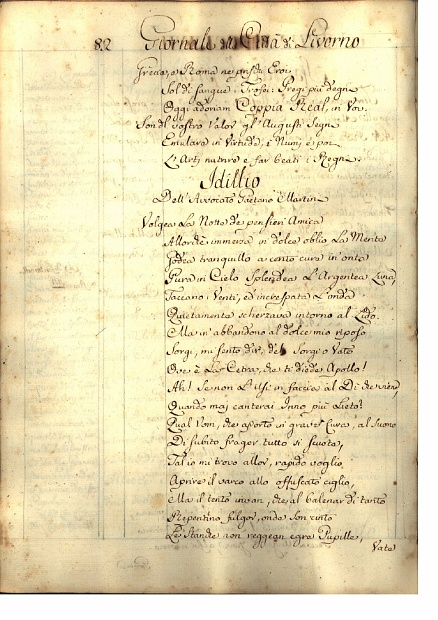 82 Giornali di Città di Livorno
Grecia, o Roma ne prischi Eroi
Sol di sangue i Trofei: Pregi più degni
Oggi adoriam Coppia Real, in Voi.
Son del vostro valor gl'Augusti Segni
Emulare in Virtude, i Numi e poi
L'Arti nutrire e far beati i Regni.
Idillio
Dell'Avvocato Gaetano Martini
Volgea La Notte de pensieri Amica
Allorchè immersa in dolce oblio La Mente
Godea tranquillo a cento cure in onta
Pura in Cielo Splendea L'Argentea Luna,
Taceano i Venti, ed increspata L'onda
Quetamente scherzava intorno al Lido.
Ma in abbandono al dolce mio riposo
Sorgi, mi sento dir, deh Sorgi o Vate
Ov'è La Cetra, che ti diede Apollo!
Ah! Se non L'usi in faccia al Dì che viene,
Quando mai canterai Inno più Lieto?
Qual Uom, che assorto in gravi Cure, al suono
Di subito fragor tutto si scuota,
Tal io mi trovo allor, rapido voglio
Aprire il varco allo offuscato ciglio,
Ma il tento invan, che al balenar di tanto
Repentino fulgor, onde son cinto
Le Stanche non reggean egre Pupille,
Vate